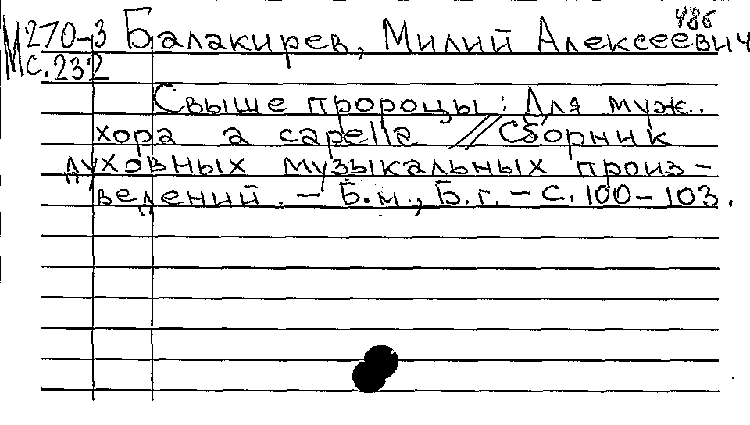 486
М 270-3 Балакирев, Милий Алексеевич
с. 232
Свыше пророцы : Для муж.
хора a capella // Сборник
духовных музыкальных произ-
ведений. - Б.м., Б.г. - С. 100-103.